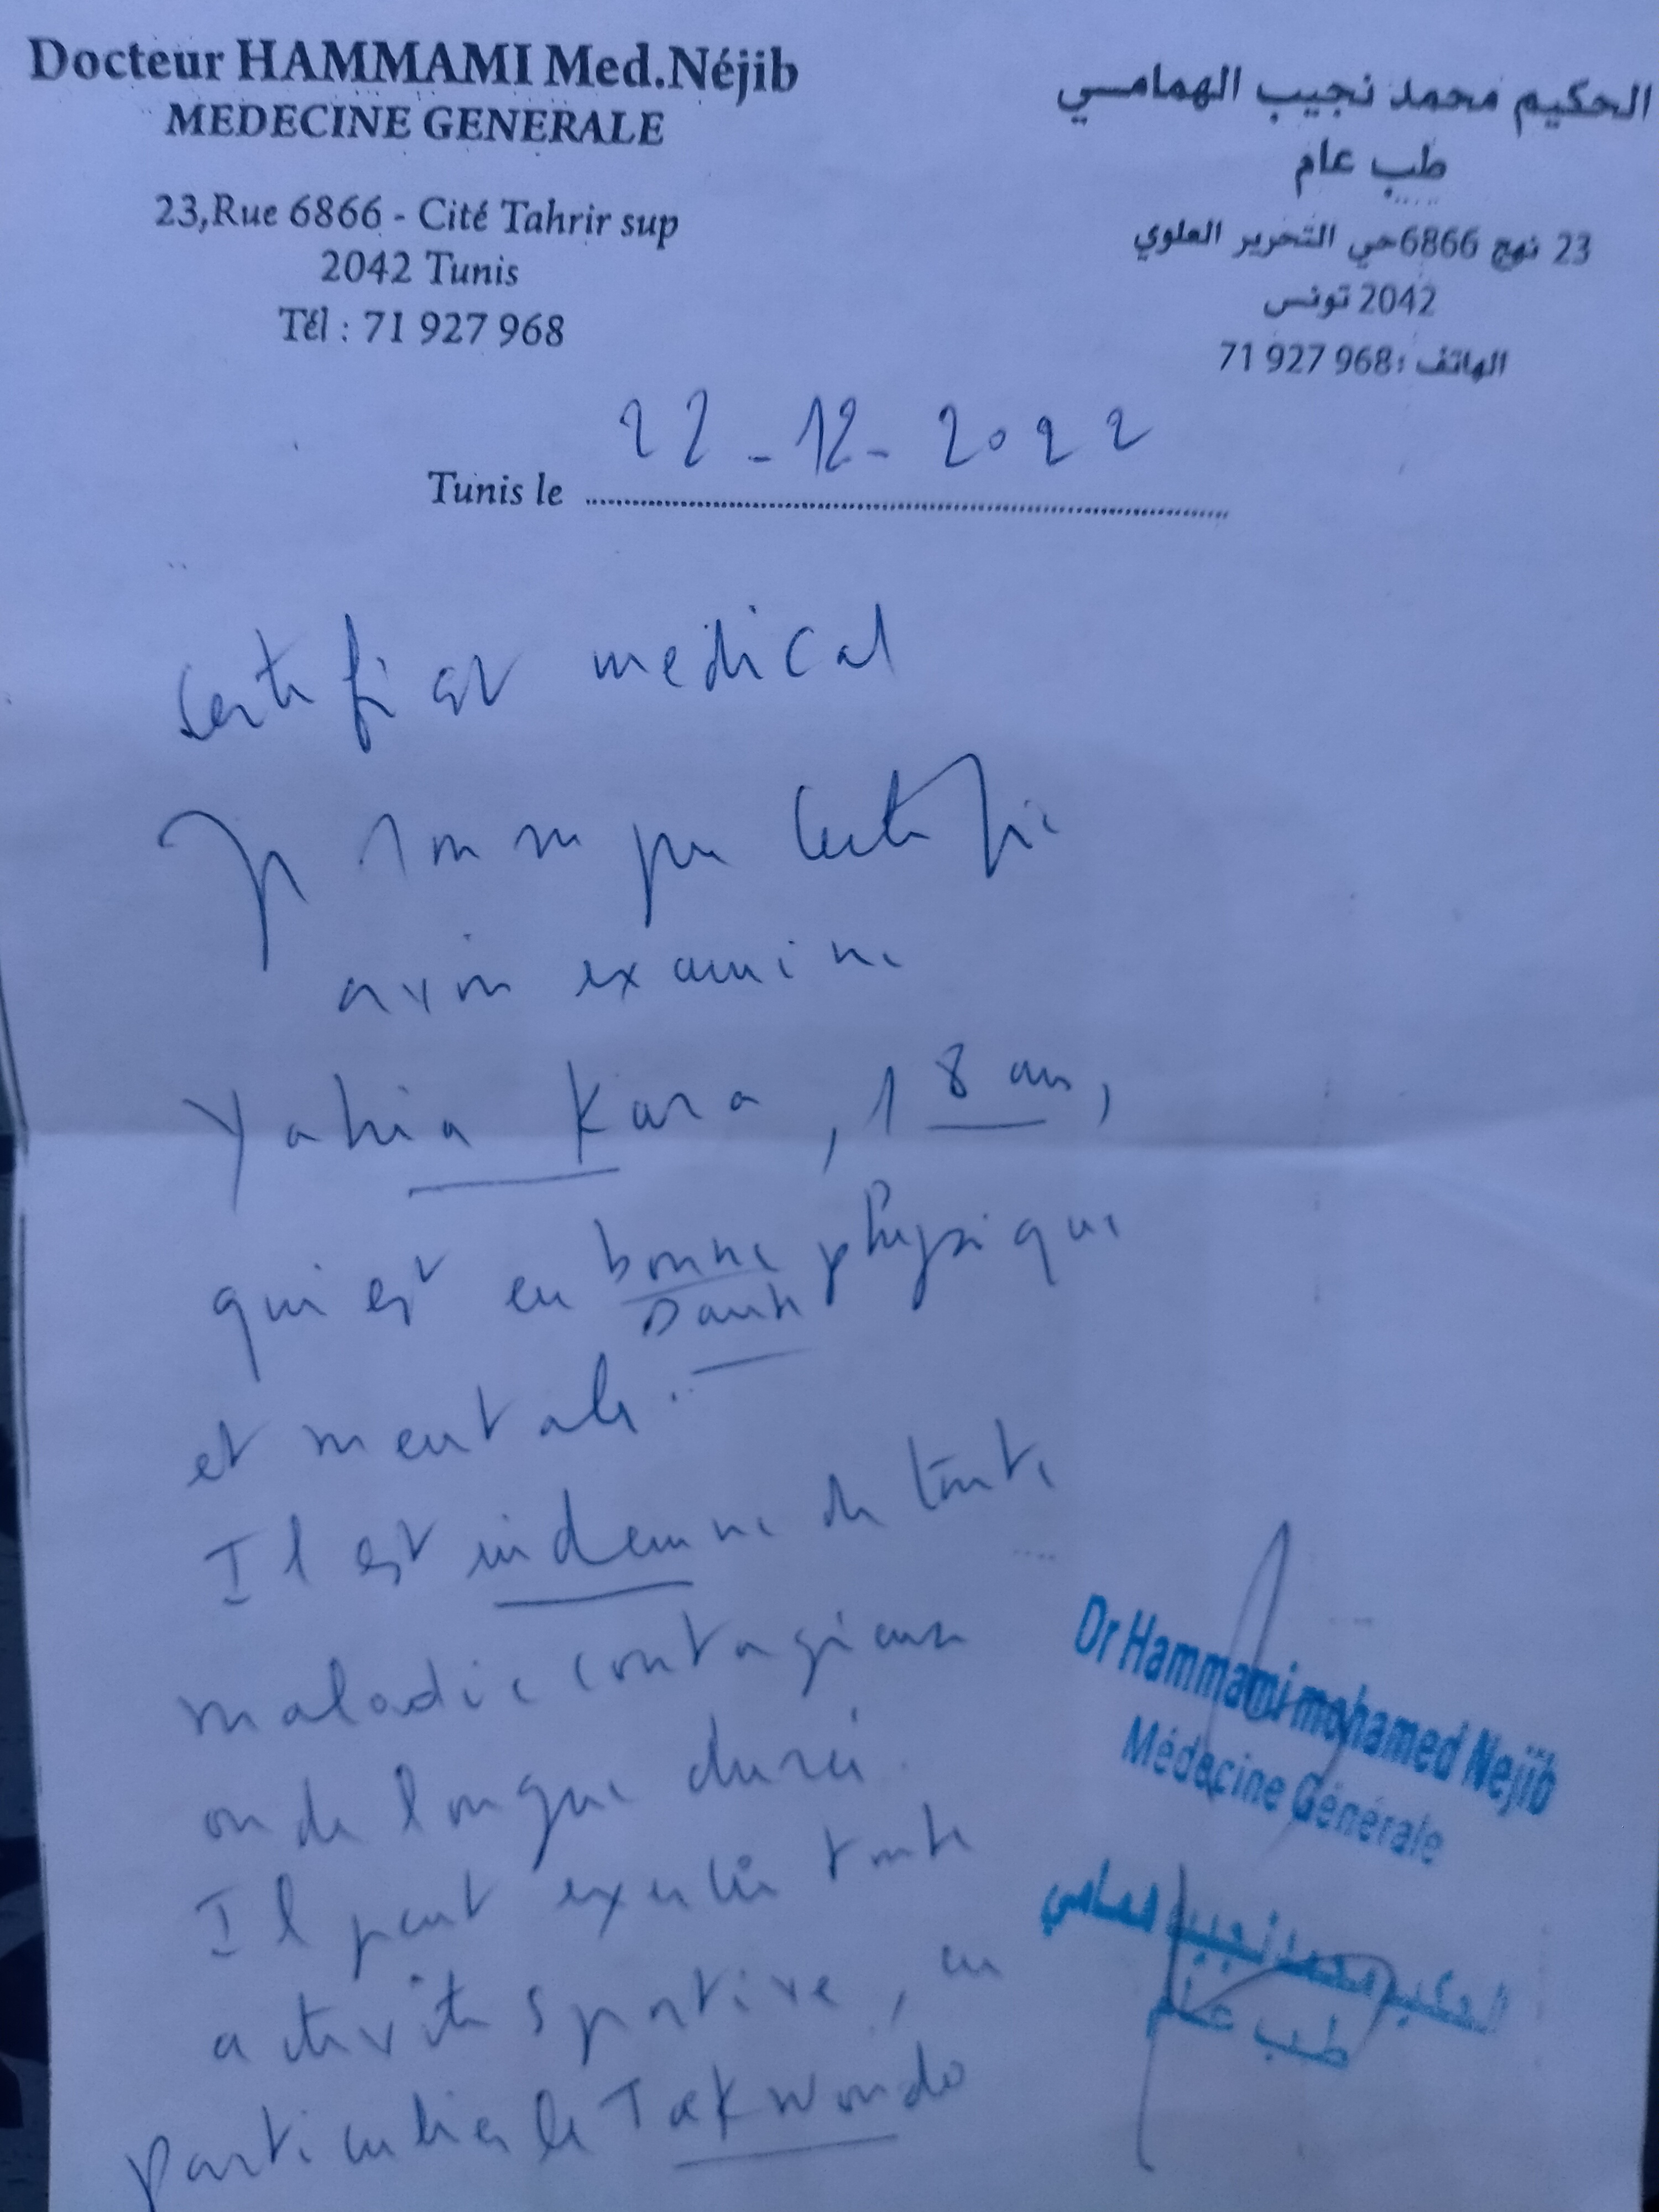 Docteur HAMMAMI Med.Néjib
MEDECINE GENERALE
23,Rue 6866 - Cité Tahrir sup
2042 Tunis
Tél : 71 927 968
الحكيم محمد نجيب الهمامي
طب عام
23 نهج 6866 حي التحرير العلوي
2042 تونس
الهاتف : 71 927 968
22-12-2022
Tunis le
Certificat medical
Je soussigné certifie
avoir examiné
Yahia Kara, 18 ans,
qui est en bonne physique
santé
et mentale.
Il est indemne de toute
maladie contagieuse
ou de longue durée.
Il peut exercer toute
activité sportive, en
particulier le Taekwondo
Dr Hammami mohamed Nejib
Médecine Générale
الحكيم محمد نجيب همامي
طب عام